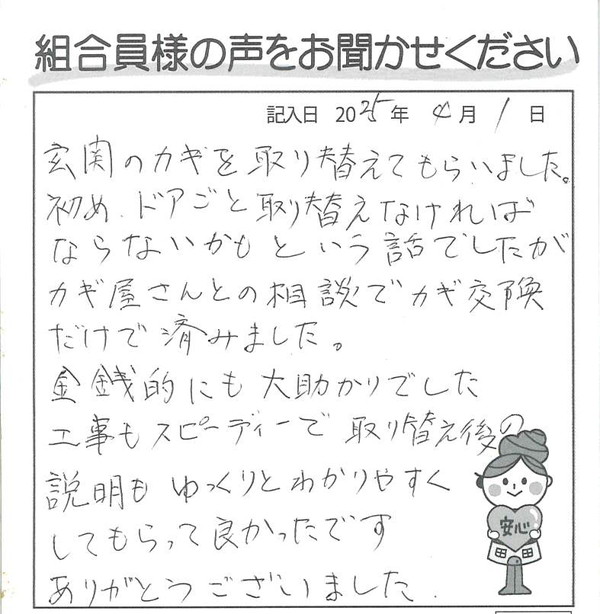 組合員様の声をお聞かせください
記入日 2025年 4月 1日
玄関のカギを取り替えてもらいました。
初め、ドアごと取り替えなければ
ならないかもという話でしたが
カギ屋さんとの相談でカギ交換
だけで済みました。
金銭的にも大助かりでした
工事もスピーディーで取り替え後の
説明もゆっくりとわかりやすく
してもらって良かったです
ありがとうございました.
安心